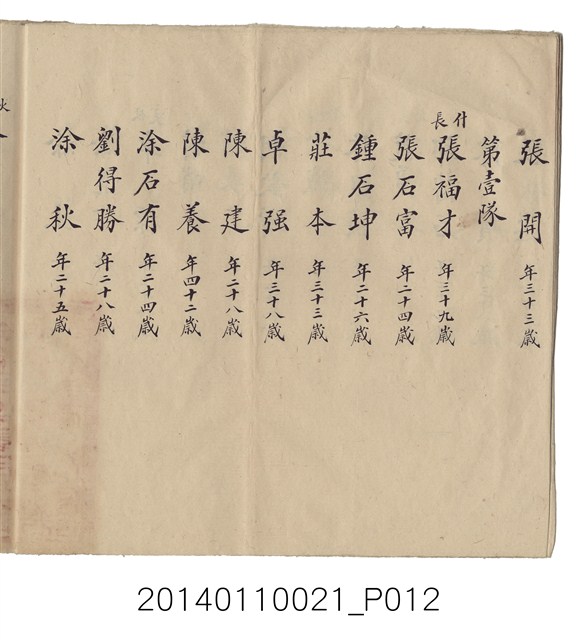 張開 年三十三歳
第壹隊
什長 張福才 年三十九歳
張石富 年二十四歳
鍾石坤 年二十六歳
莊本 年三十三歳
卓强 年三十八歳
陳建 年二十八歳
陳養 年四十二歳
涂石有 年二十四歳
劉得勝 年二十八歳
涂秋 年二十五歳
20140110021_P012